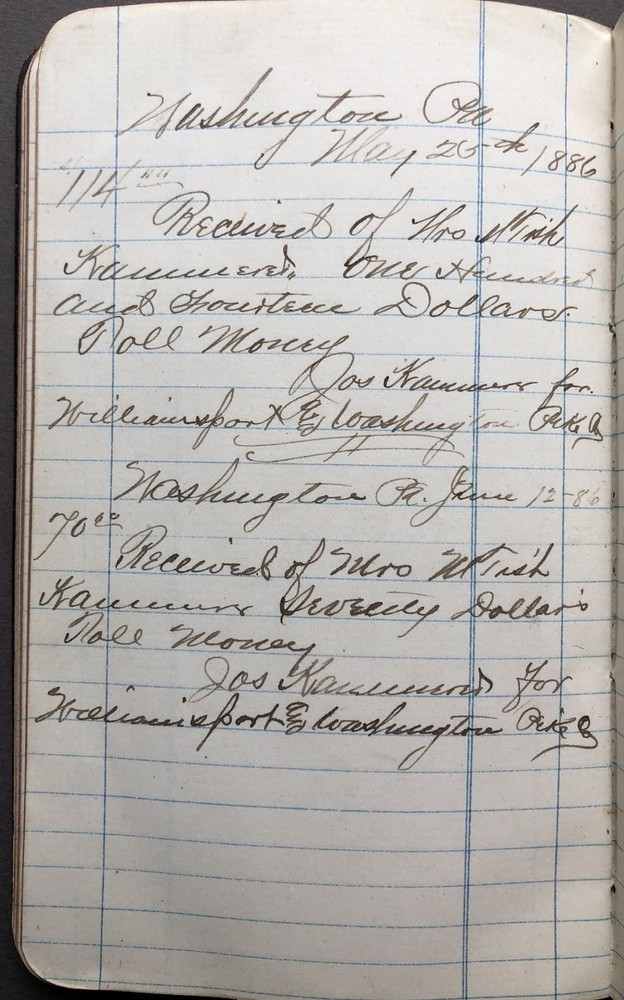 Washington Pa
May 25th 1886
114 00
Received of Mrs
Kammerer One Hundred
and Fourteen Dollars.
Toll Money
Jos Kammerer for.
Williamsport & Washington Pike
Washington Pa. June 12-86
70 00
Received of Mrs
Kammerer Seventy Dollars
Toll Money
Jos Kammerer for
Williamsport & Washington Pike